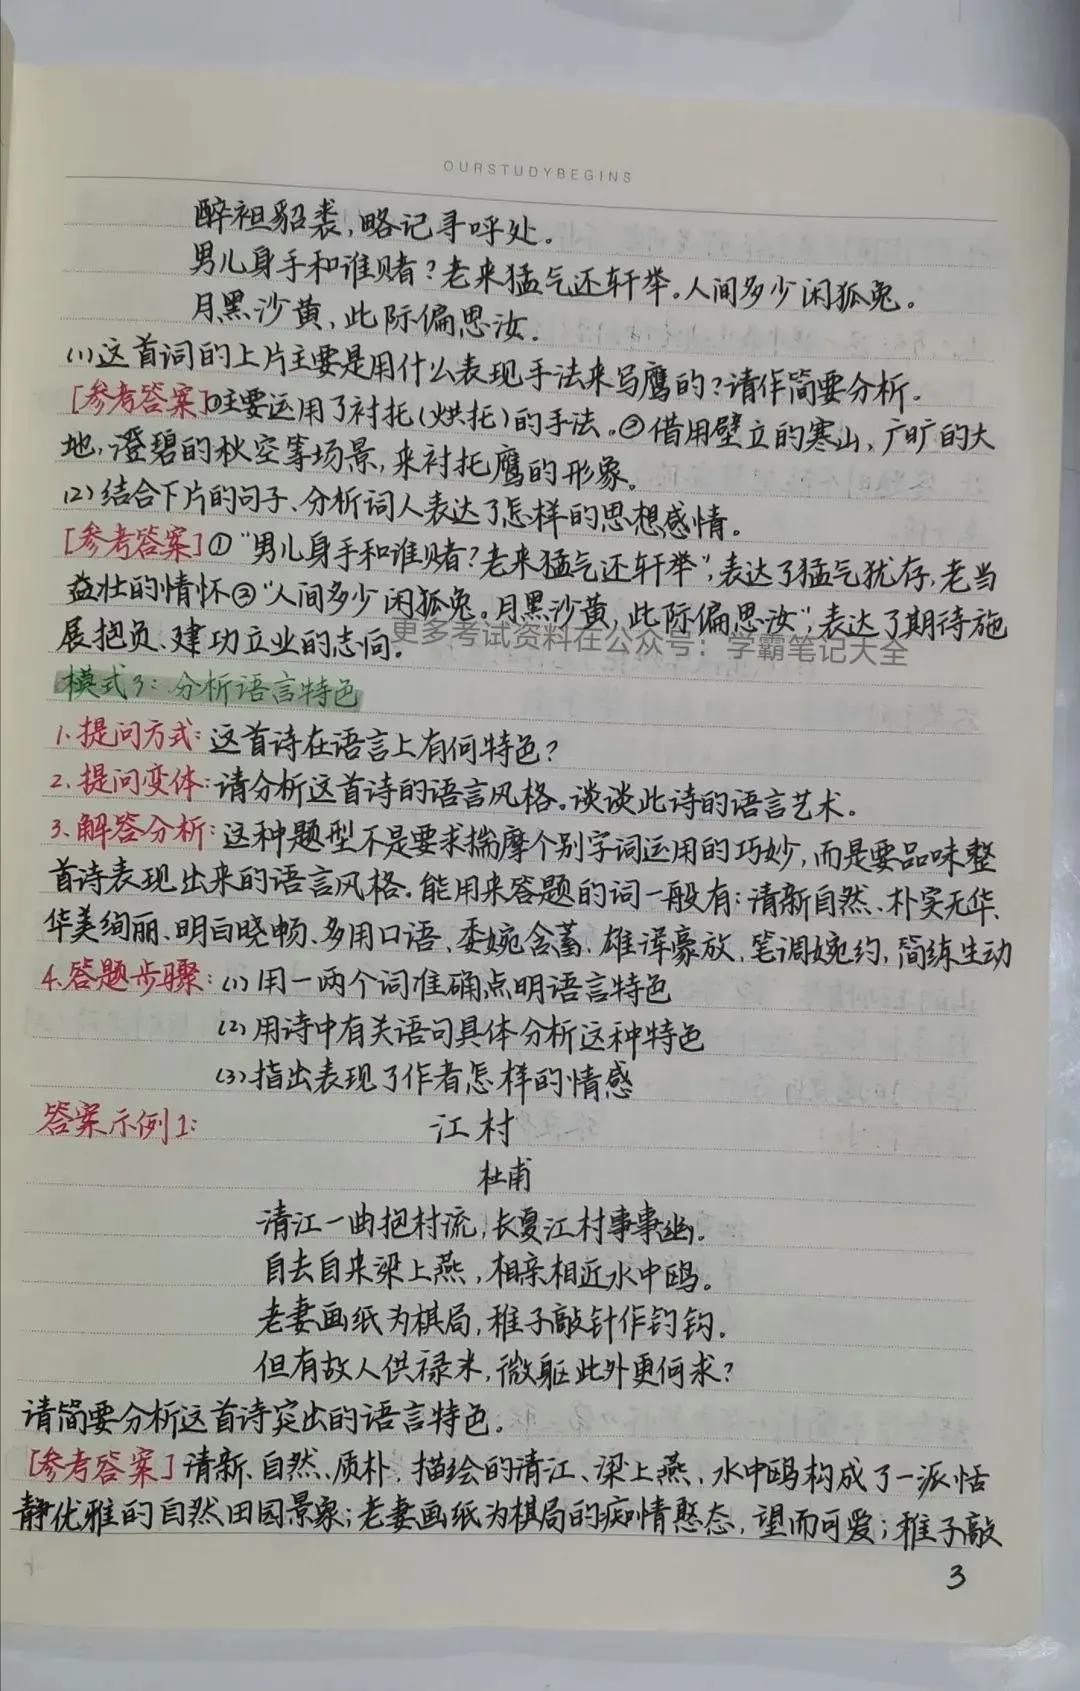 OURSTUDYBEGINS
醉袒貂裘，略记寻呼处。
男儿身手和谁赌？老来猛气还轩举。人间多少闲狐兔。
月黑沙黄，此际偏思汝。
(1)这首词的上片主要是用什么表现手法来写鹰的？请作简要分析。
[参考答案]①主要运用了衬托(烘托)的手法。②借用壁立的寒山，广旷的大
地，澄碧的秋空等场景，来衬托鹰的形象。
(2)结合下片的句子、分析词人表达了怎样的思想感情。
[参考答案]①“男儿身手和谁赌？老来猛气还轩举”，表达了猛气犹存，老当
益壮的情怀②“人间多少闲狐兔。月黑沙黄，此际偏思汝”，表达了期待施
展抱负、建功立业的志向。
更多考试资料在公众号：学霸笔记大全
模式3：分析语言特色
1.提问方式：这首诗在语言上有何特色？
2.提问变体：请分析这首诗的语言风格。谈谈此诗的语言艺术。
3.解答分析：这种题型不是要求揣摩个别字词运用的巧妙，而是要品味整
首诗表现出来的语言风格。能用来答题的词一般有：清新自然、朴实无华、
华美绚丽、明白晓畅、多用口语、委婉含蓄、雄浑豪放、笔调婉约，简练生动
4.答题步骤：(1)用一两个词准确点明语言特色
(2)用诗中有关语句具体分析这种特色
(3)指出表现了作者怎样的情感
答案示例1：
江村
杜甫
清江一曲抱村流，长夏江村事事幽。
自去自来梁上燕，相亲相近水中鸥。
老妻画纸为棋局，稚子敲针作钓钩。
但有故人供禄米，微躯此外更何求？
请简要分析这首诗突出的语言特色。
[参考答案]清新、自然、质朴，描绘的清江、梁上燕、水中鸥构成了一派恬
静优雅的自然田园景象；老妻画纸为棋局的痴情憨态，望而可爱；稚子敲
3